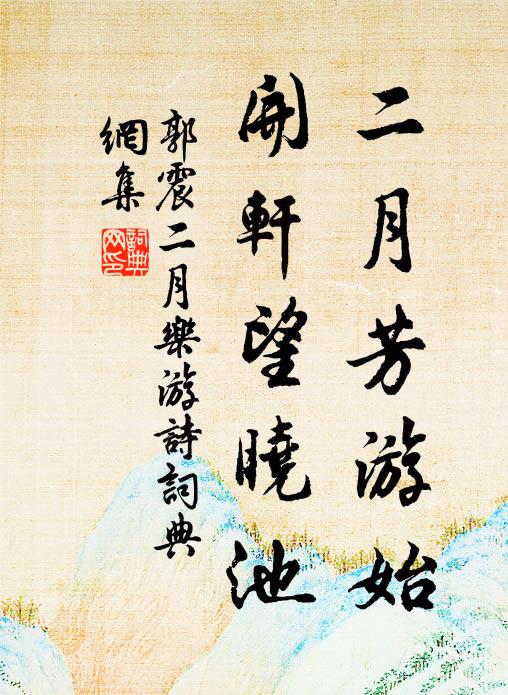 二月芳游始
開軒望曉池
郭震二月樂游詩詞典
網集
詞典
网印